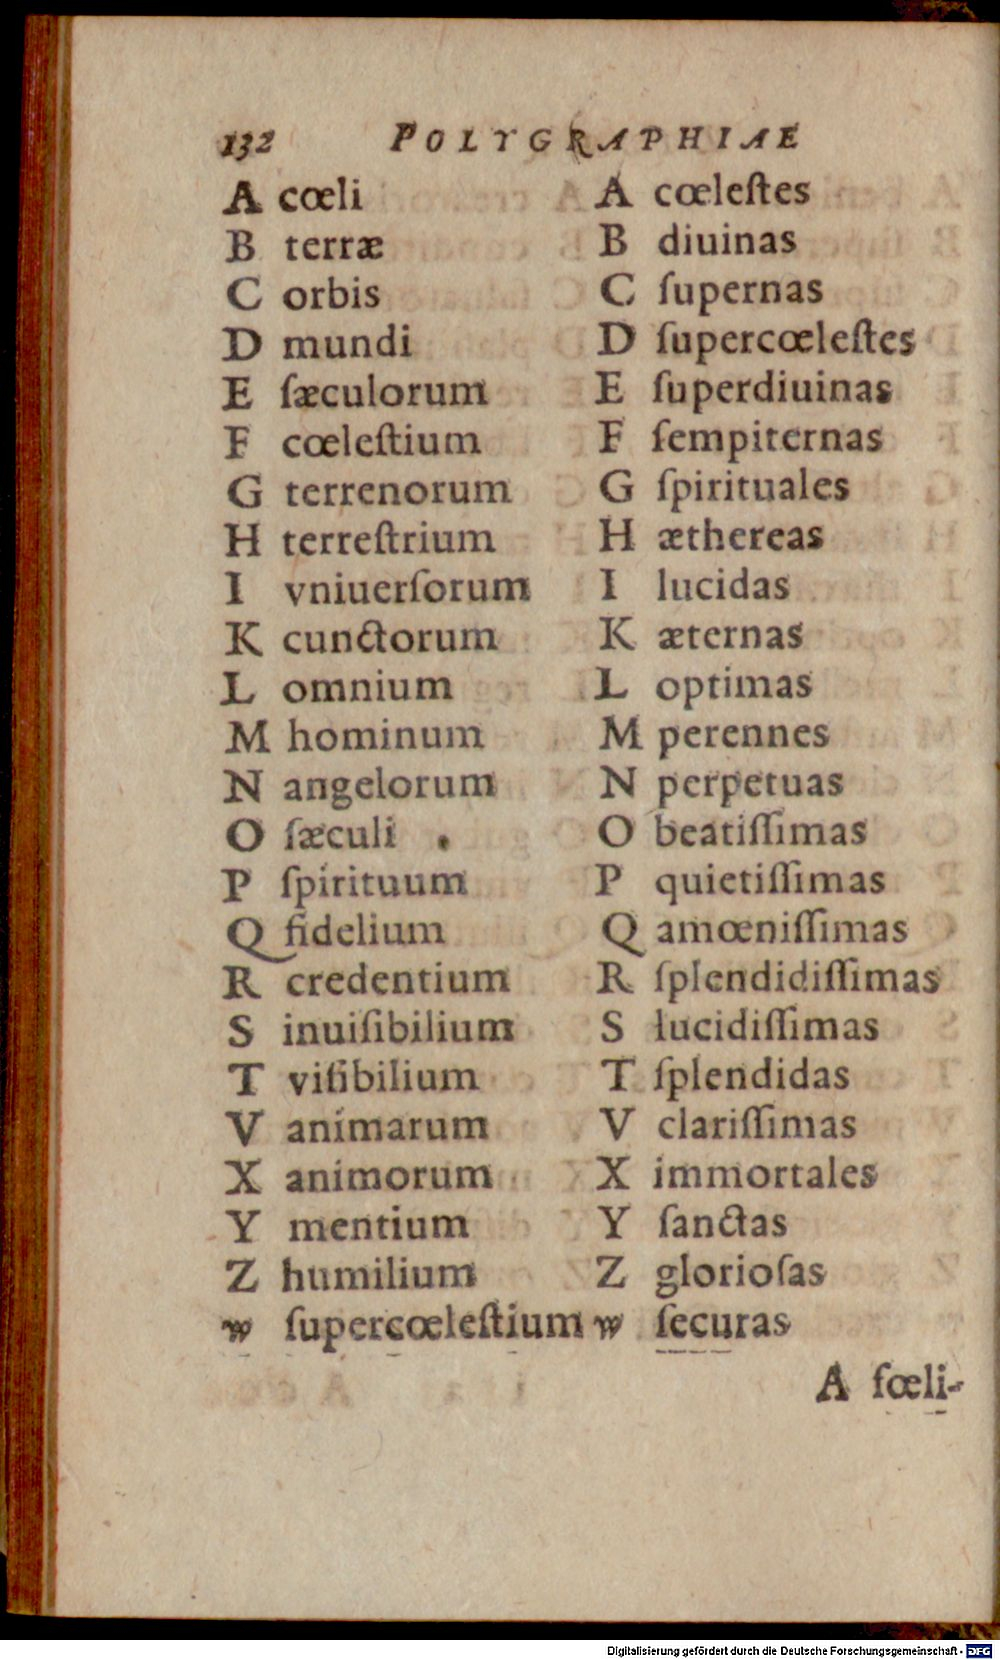 132 POLYGRAPHIAE
A cœli
B terræ
C orbis
D mundi
E ſæculorum
F cœleſtium
G terrenorum
H terreſtrium
I vniuerſorum
K cunctorum
L omnium
M hominum
N angelorum
O ſæculi
P ſpirituum
Q fidelium
R credentium
S inuiſibilium
T viſibilium
V animarum
X animorum
Y mentium
Z humilium
w ſupercœleſtium
A cœleſtes
B diuinas
C ſupernas
D ſupercœleſtes
E ſuperdiuinas
F ſempiternas
G ſpirituales
H æthereas
I lucidas
K æternas
L optimas
M perennes
N perpetuas
O beatiſſimas
P quietiſſimas
Q amœniſſimas
R ſplendidiſſimas
S lucidiſſimas
T ſplendidas
V clariſſimas
X immortales
Y ſanctas
Z glorioſas
w ſecuras
A fœli-
Digitalisierung gefördert durch die Deutsche Forschungsgemeinschaft - DFG